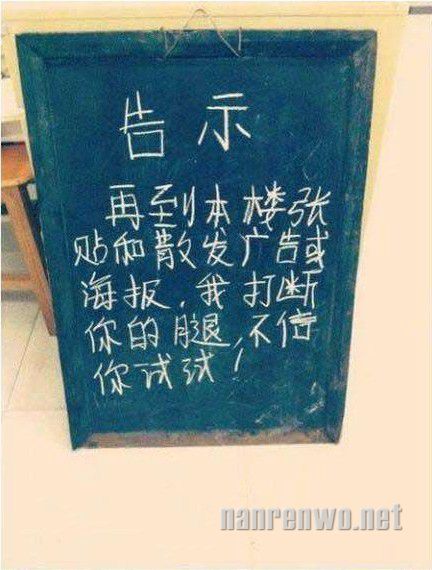 告示
再到本楼张
贴和散发广告或
海报，我打断
你的腿，不信
你试试！
nanrenwo.net